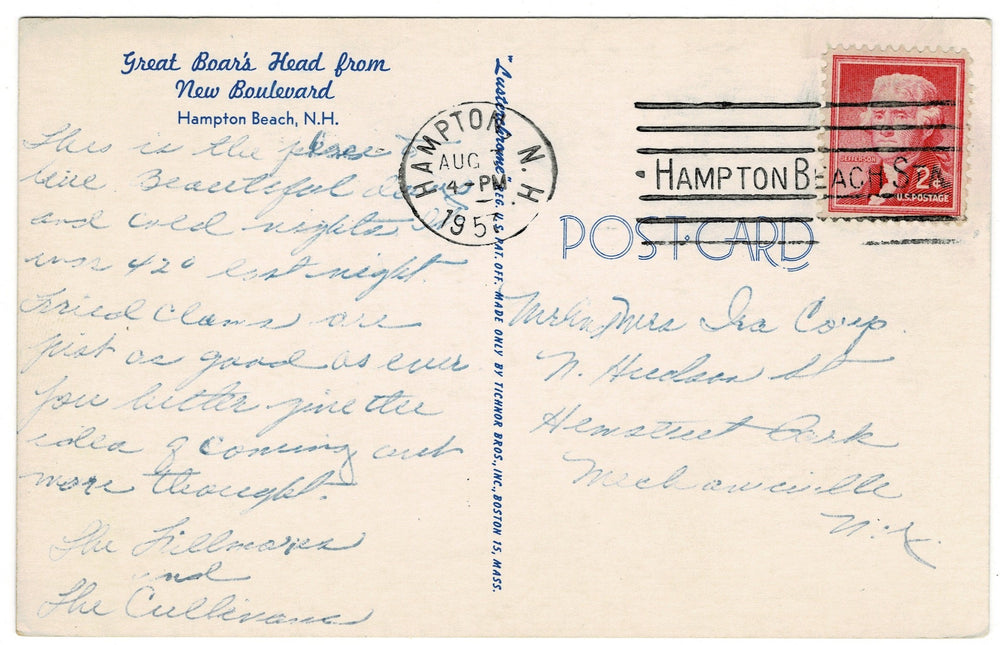 Great Boar's Head from
New Boulevard
Hampton Beach, N.H.
This is the place to
live Beautiful days
and cold nights. It
was 42° last night.
Fried clams are
just as good as ever
You better give the
idea of coming out
more thought.
The Fillmores
and
The Cullivans
"Lusterchrome" REG. U.S. PAT. OFF. MADE ONLY BY TICHNOR BROS., INC., BOSTON 15, MASS.
HAMPTON N.H.
AUG
4 - PM
195
HAMPTON BEACH
JEFFERSON
2¢
U.S. POSTAGE
POST CARD
Mr and Mrs Ira Corp.
N. Hudson St
Hemstreet Park
Mechanicville
N.Y.